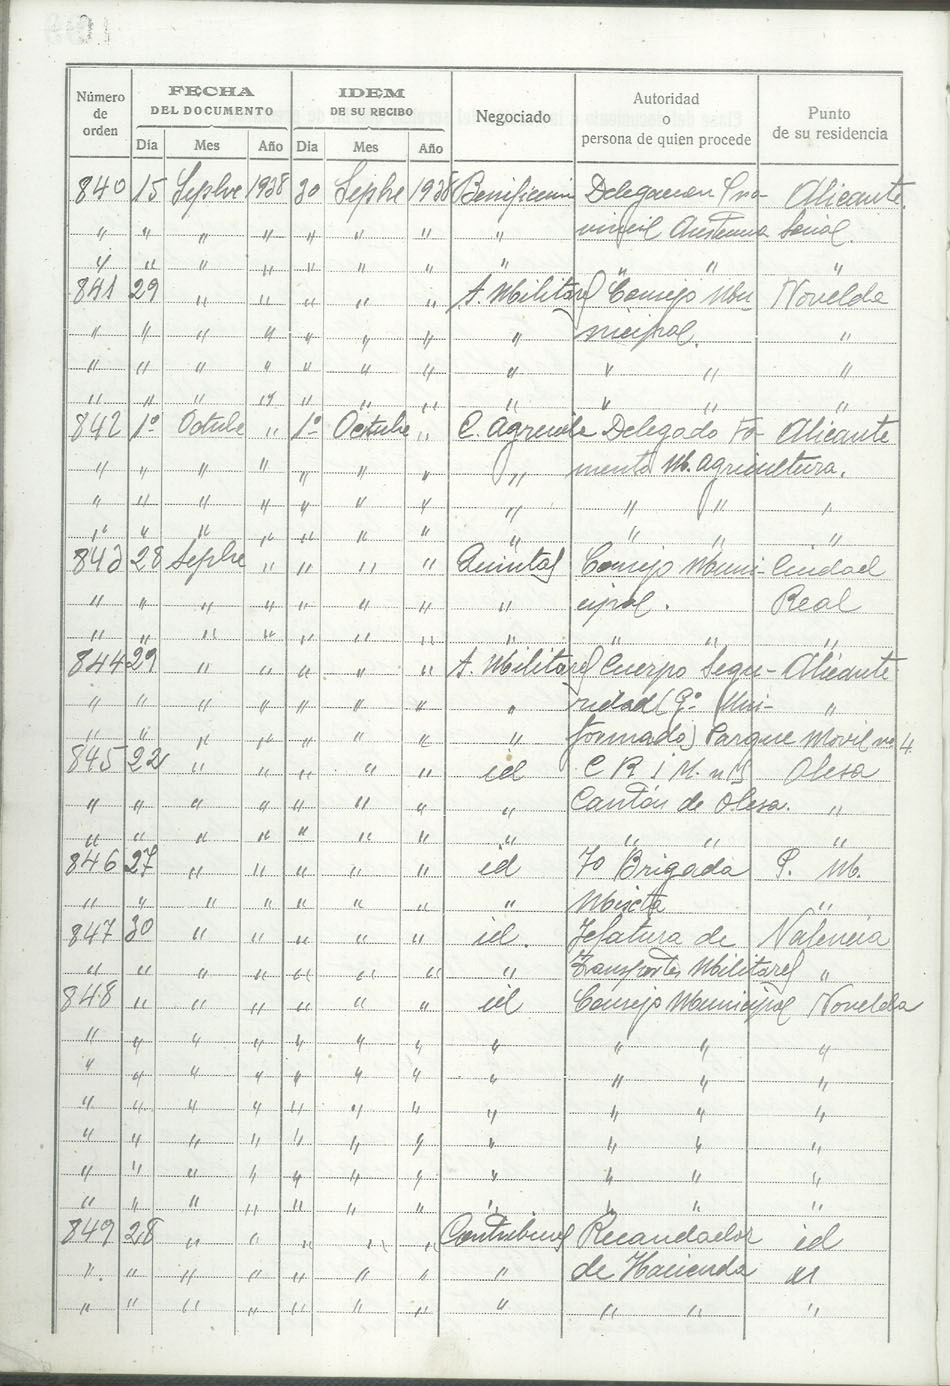 Número de orden | FECHA DEL DOCUMENTO | IDEM DE SU RECIBO | Negociado | Autoridad o persona de quien procede | Punto de su residencia
Día | Mes | Año | Día | Mes | Año
840 15 Sepbre 1938 30 Sepbre 1938 Beneficencia Delegacion Pro- Alicante.
" " " " " " " " vincial Asistencia Social.
" " " " " " " " " " "
841 29 " " " " " A. Militares Consejo Mu- Novelda
" " " " " " " " nicipal. "
" " " " " " " " " " "
" " " " " " " " " " "
842 1º Octubre " 1º Octubre " C. Agricola Delegado Fo- Alicante
" " " " " " " " mento M. Agricultura.
" " " " " " " " " " "
" " " " " " " " " " "
843 28 Sepbre " " " " Quintas Consejo Muni- Ciudad
" " " " " " " " cipal. Real
" " " " " " " " " " "
844 29 " " " " " A. Militares Cuerpo Segu- Alicante
" " " " " " " " ridad (Gº Uni- "
" " " " " " " " formado) Parque Movil nº 4.
845 22 " " " " " id C R I M. nº Olesa
" " " " " " " " Cantón de Olesa. "
" " " " " " " " " " "
846 27 " " " " " id 70 Brigada P. M.
" " " " " " " " Mixta "
847 30 " " " " " id. Jefatura de Valencia
" " " " " " " " Transportes Militares "
848 " " " " " " id Consejo Municipal Novelda
" " " " " " " " " " "
" " " " " " " " " " "
" " " " " " " " " " "
" " " " " " " " " " "
" " " " " " " " " " "
" " " " " " " " " " "
849 28 " " " " " Contribucns Recaudador id
" " " " " " " " de Hacienda "
" " " " " " " " " " "